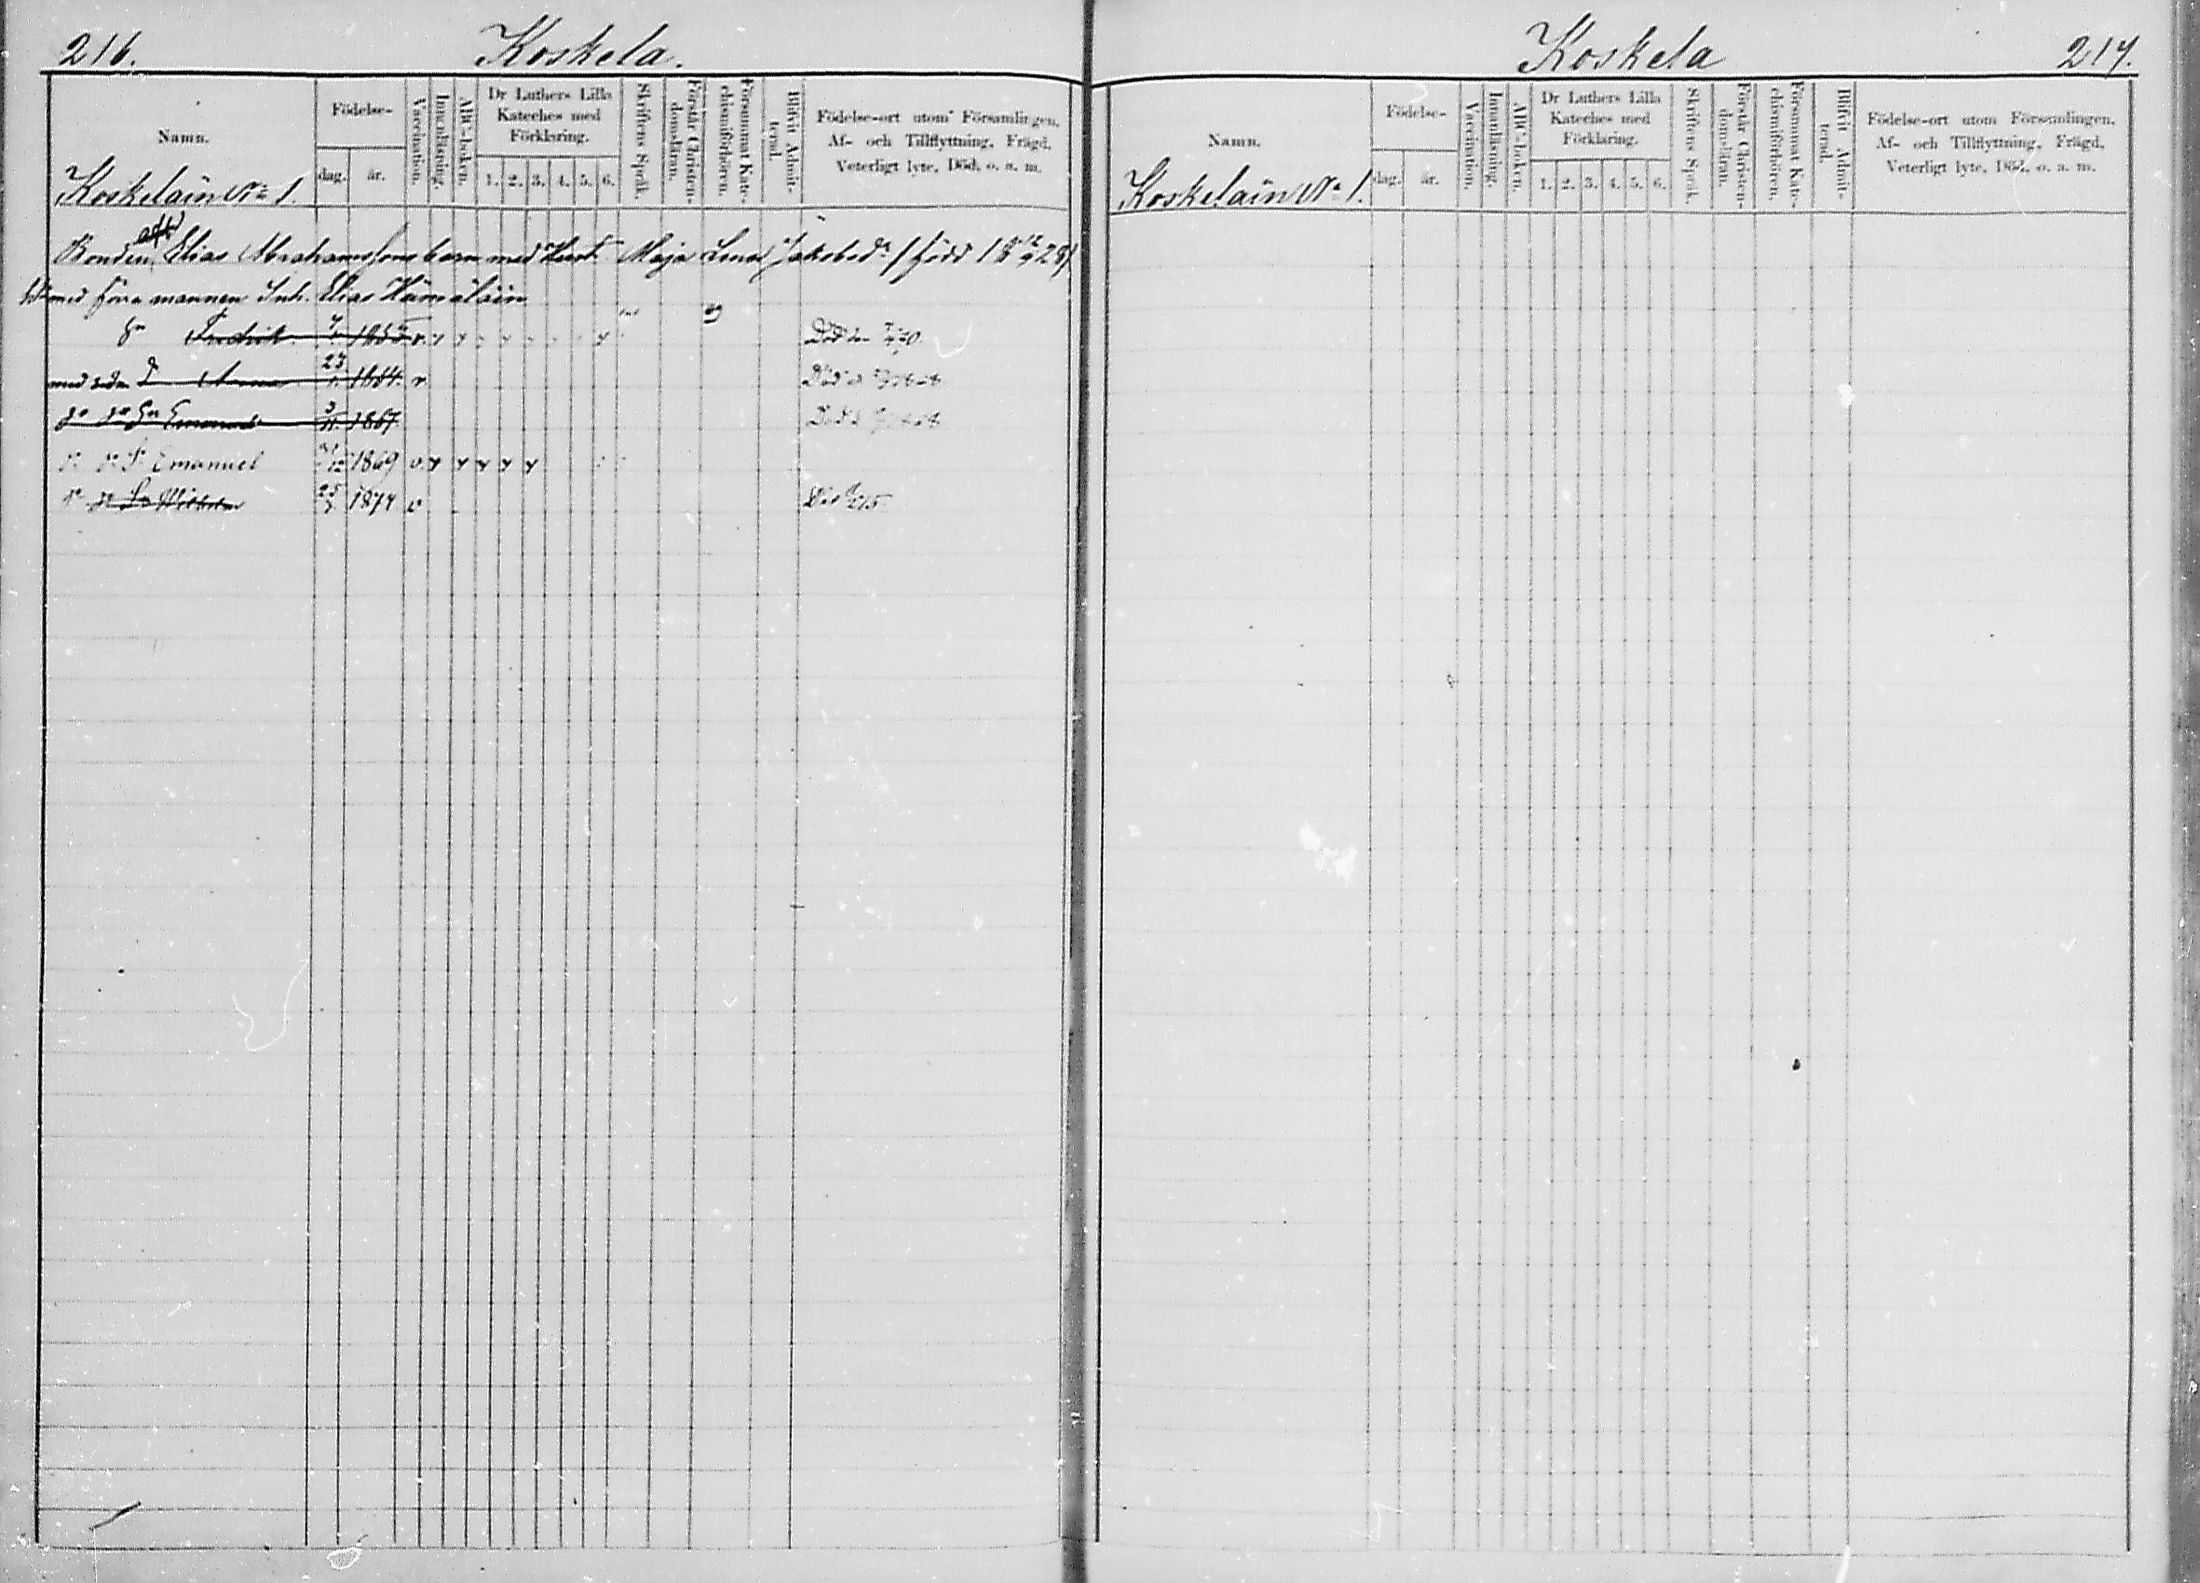 216. Koskela.
Namn.
Födelse-
dag. år.
Vaccination.
Innanläsning.
ABC-boken.
Dr Luthers Lilla
Kateches med
Förklaring.
1. 2. 3. 4. 5. 6.
Skriftens Språk.
Förstår Christen-
domsläran.
Försummat Kate-
chismiförhören.
Blifvit Admit-
terad.
Födelse-ort utom Församlingen.
Af- och Tillflyttning, Frägd,
Veterligt lyte, Död, o. a. m.
Koskelain No 1.
Bonden Elias Abrahamssons barn med Hust. Maja Lena Jakobsdr
med förra mannen Inh. Elias Hämäläin
Fredrik 1855 v Död den
med Anna 23 1864 v Död
3 1867 Död
Emanuel 1869 v
Wilhelm 25 1874 v Död
Koskela 217.
Namn.
Födelse-
dag. år.
Vaccination.
Innanläsning.
ABC-boken.
Dr Luthers Lilla
Kateches med
Förklaring.
1. 2. 3. 4. 5. 6.
Skriftens Språk.
Förstår Christen-
domsläran.
Försummat Kate-
chismiförhören.
Blifvit Admit-
terad.
Födelse-ort utom Församlingen.
Af- och Tillflyttning, Frägd,
Veterligt lyte, Död, o. a. m.
Koskelain No 1.